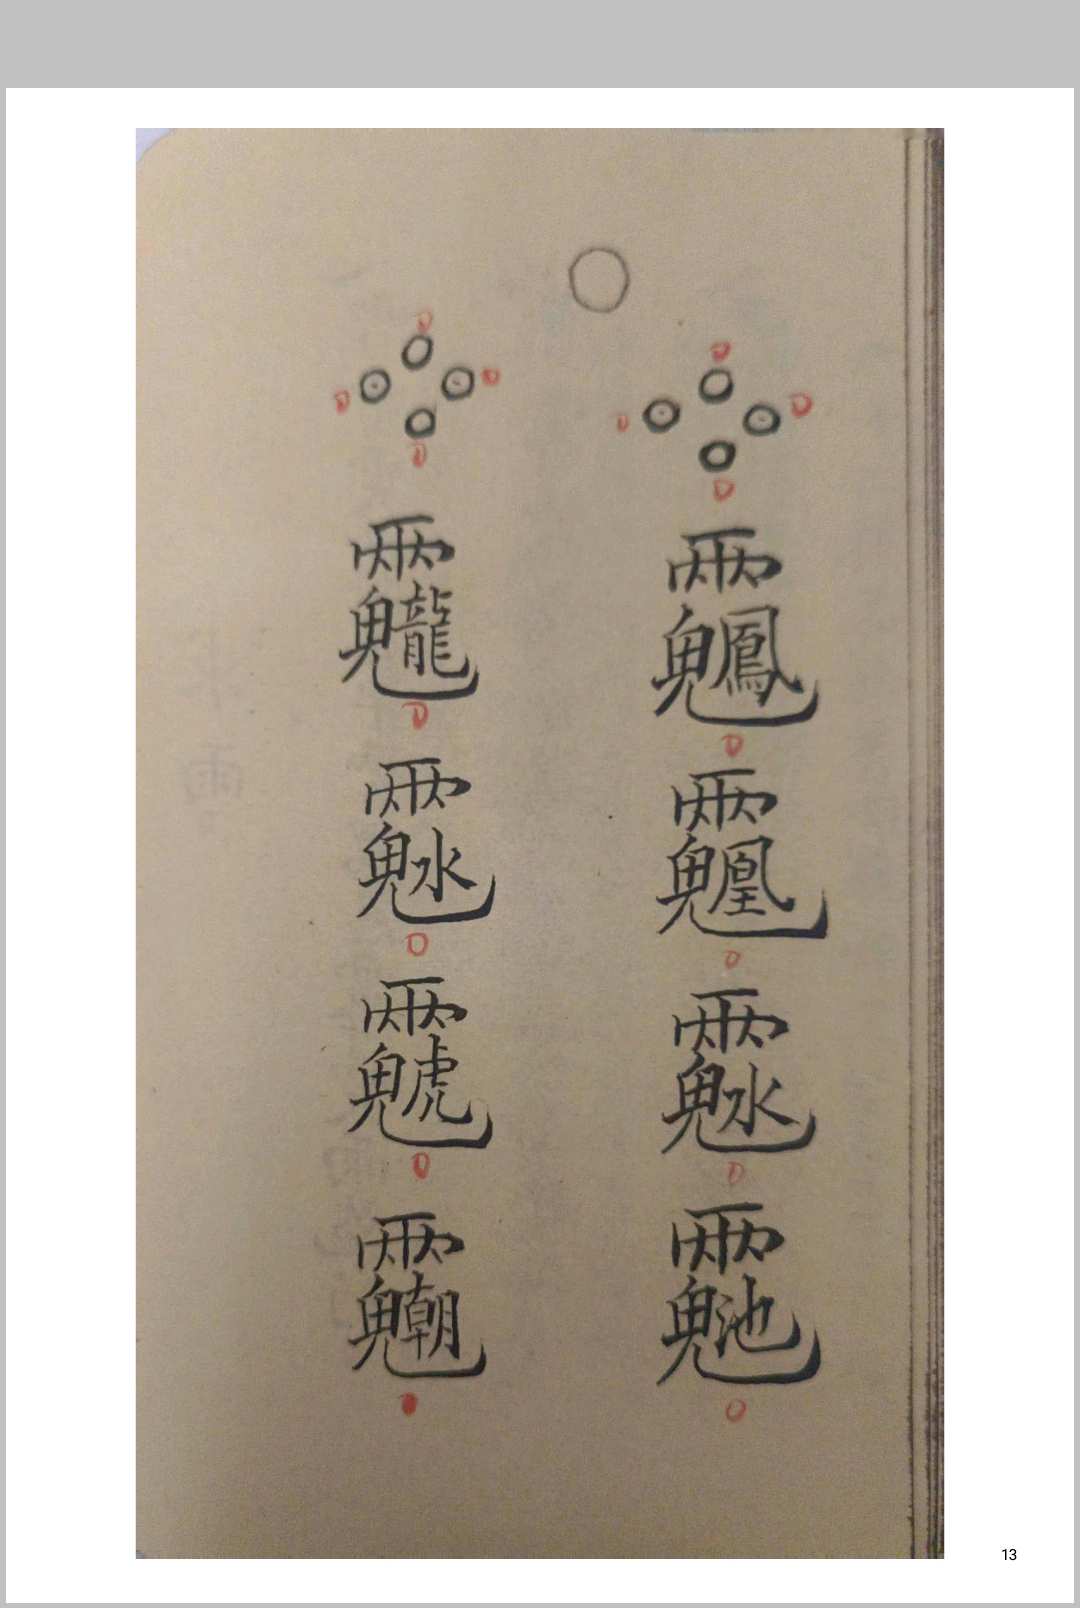 ⿱雨⿺鬼鳳⿱雨⿺鬼凰⿱雨⿺鬼水⿱雨⿺鬼池
⿱雨⿺鬼龍⿱雨⿺鬼水⿱雨⿺鬼虎⿱雨⿺鬼朝
13